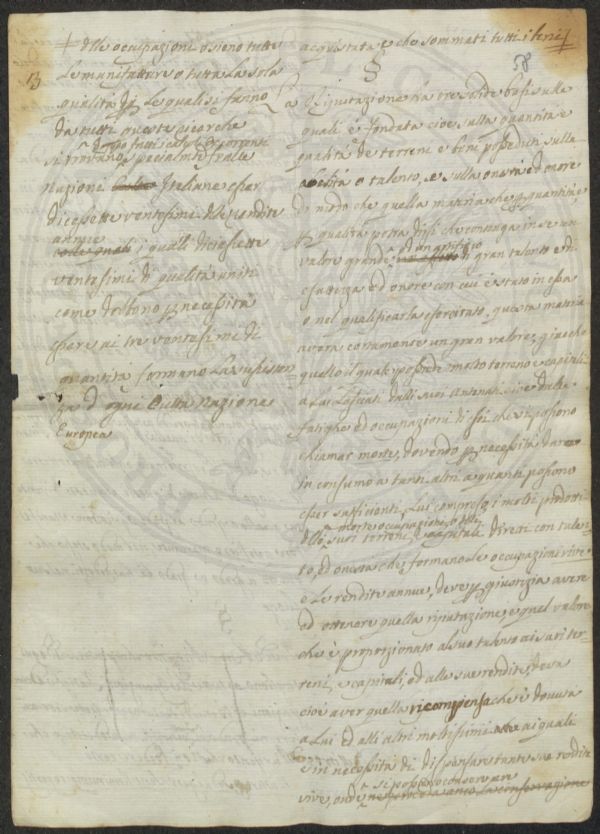 + delle occupazioni o sieno tutte
Le manifatture o tutta La sola
qualità Le quali si fanno
da tutti queste ricerche
si trovano specialmente fralle
Nazioni Italiane esser
diecesette ventesimi delle rendite
annue quali diciesette
ventesimi di qualità uniti
come debbono p necessità
essere ai tre ventesimi di
quantità formano La sussisten
za d'ogni Culta Nazione
Europea
13
acquistata e che sommati tutti i beni +
§
58
Riputazione ha tre solide basi sulle
quali è fondata cioè, sulla quantità e
qualità de terreni e beni posseduti sulla
abilità o talento, e sulla onestà ed onore
di modo che quella materia che p quantità, e
p qualità potrà dirsi che contenga in se un
valore grande di gran talento e di
esattezza ed onore con cui è stato in essa
o nel qualificarla esercitato, questa materia
averà certamente un gran valore; giacchè
quello il quale possiede molto terreno e capitali
a Lui Lasciati dalli suoi Antenati
fatighe ed occupazioni di essi che si possono
chiamar morte, dovendo p necessità dare
in consumo a tanti altri a quanti possono
esser sufficienti, Lui compreso, i molti prodotti
morte occupazioni
suoi terreni, e capitale diretti con talen
to, ed onestà che formano Le occupazioni vive
e Le rendite annue, deve p giustizia avere
ed ottenere quella riputazione, e quel valore
che è proporzionato al suo talento ai suoi ter
reni, e capitali, ed alle sue rendite, deva
cioè aver quella ricompensa che è dovuta
a Lui ed alli altri moltissimi ai quali
è in necessità di dispensare tante sue rendite
si possino conservare
vive, onde La conservazione